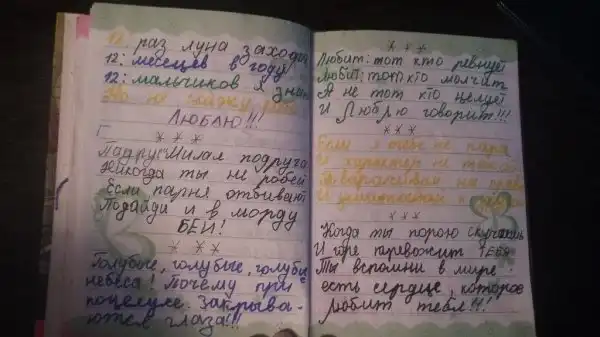 раз луна заходи
12: месецев в году
12: мальчиков я зна
ЛЮБЛЮ!!!
* * *
Милая подруга
Никогда ты не робей
Если парня отбивают
Подайди и в морду
БЕЙ!
* * *
Голубые, голубые, голубые
небеса! Почему при
поцелуе закрыва-
ются глаза!!!
* * *
Любит: тот кто ревнует
Любит: тот кто молчит
А не тот кто целует
И Люблю говорит!!!
* * *
Если я тебе не пара
И характер не такой
* * *
Когда ты порою скучаешь
И горе тревожит ТЕБЯ
Ты вспомни в мире
есть сердце, которое
любит тебя!!!